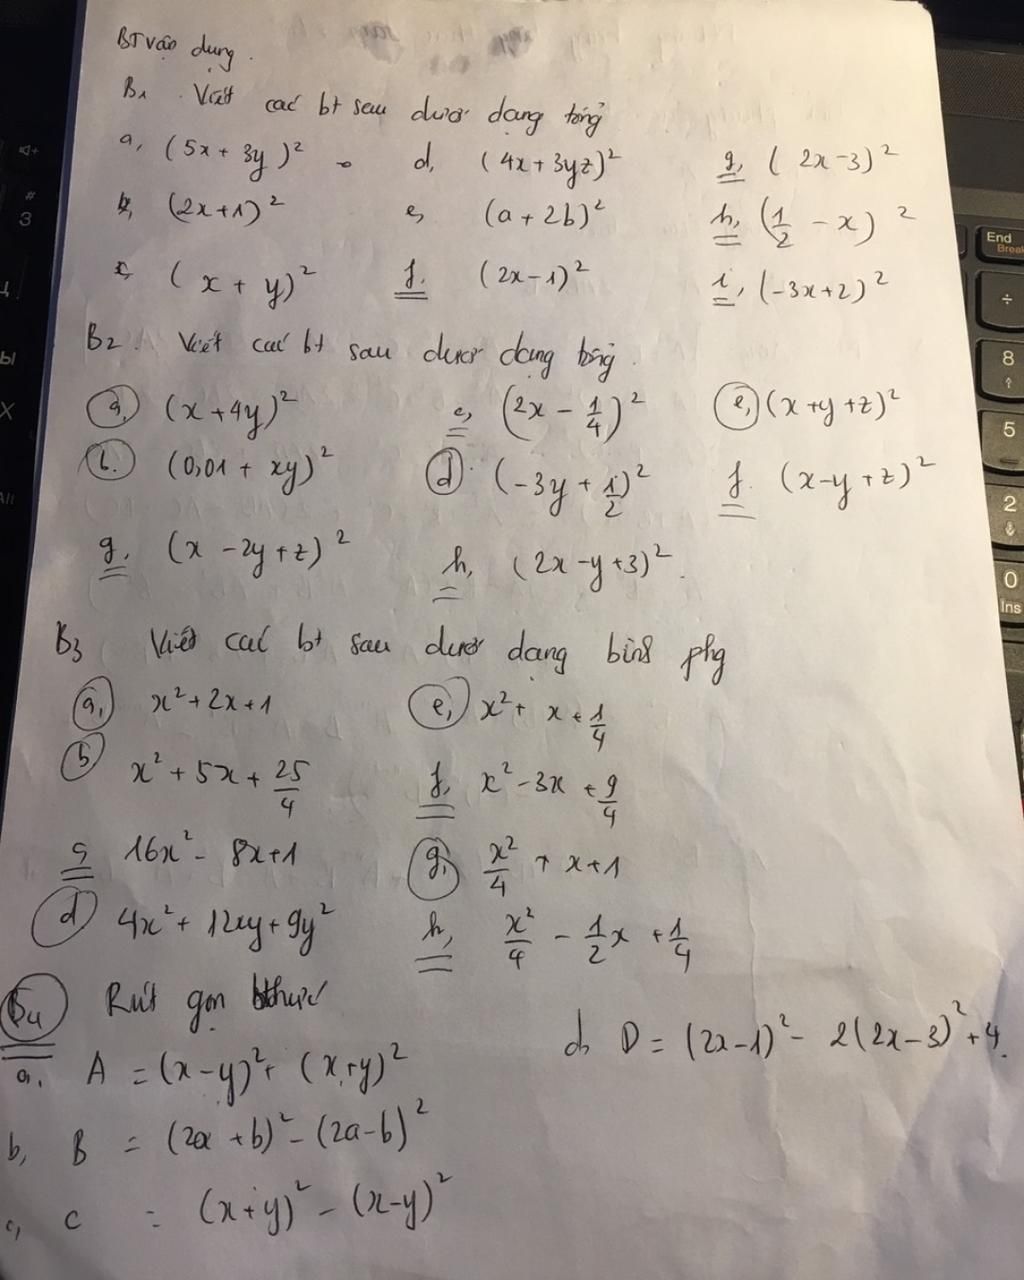 BT vận dụng.
B1. Viết các bt sau dưới dạng tổng
a, (5x + 3y)² d, (4x + 3yz)² g, (2x - 3)²
b, (2x + 1)² e, (a + 2b)² h, (1/2 - x)²
c, (x + y)² f. (2x - 1)² i, (-3x + 2)²
B2. Viết các bt sau dưới dạng tổng.
a, (x + 4y)² c, (2x - 1/4)² e, (x + y + z)²
b. (0,01 + xy)² d. (-3y + 1/2)² f. (x - y + z)²
g. (x - 2y + z)² h, (2x - y + 3)².
B3 Viết các bt sau dưới dạng bình phg
a, x² + 2x + 1 e, x² + x + 1/4
b x² + 5x + 25/4 f, x² - 3x + 9/4
c 16x² - 8x + 1 g, x²/4 + x + 1
d 4x² + 12xy + 9y² h, x²/4 - 1/2x + 1/4
B4 Rút gọn bthức
a, A = (x - y)² + (x + y)² d, D = (2x - 1)² - 2(2x - 3)² + 4.
b, B = (2a + b)² - (2a - b)²
c, C = (x + y)² - (x - y)²
#
3
End
Break
÷
8
5
2
0
Ins